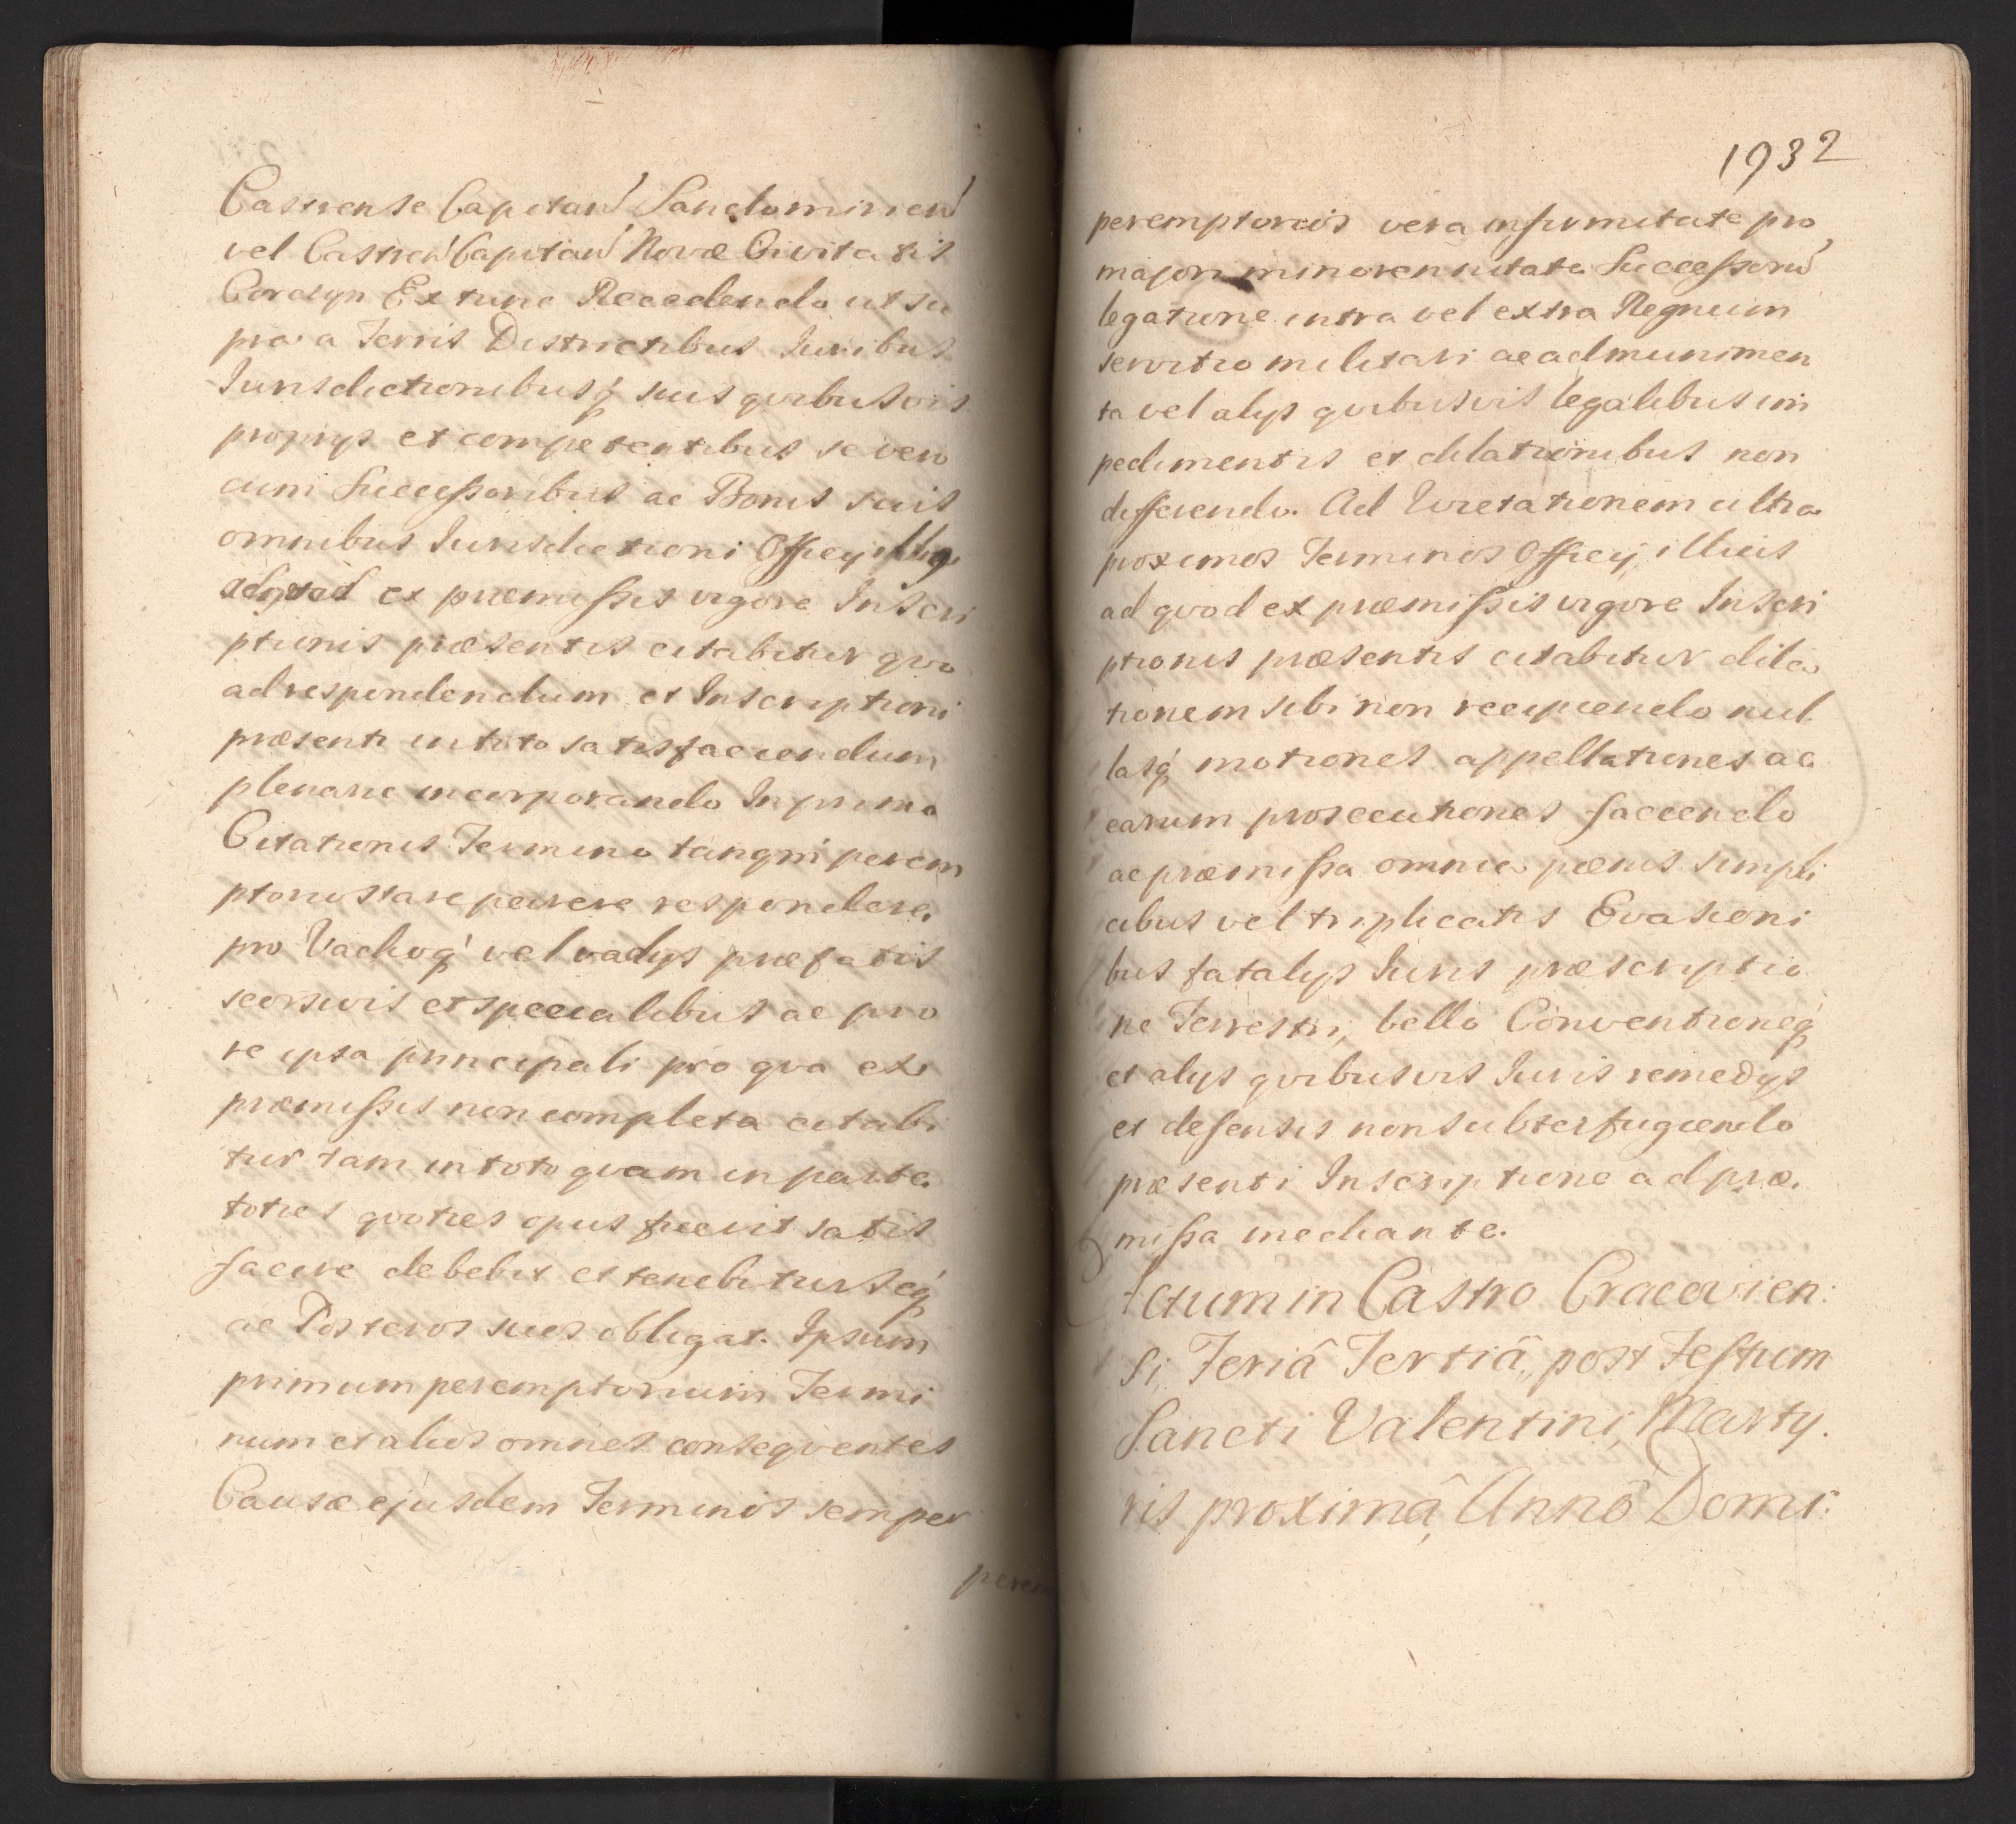 Castrense Capitan Sandomirien
vel Castren Capitan Novæ Civitatis
Corczyn Extunc Recedendo ut su
pra a Terris Districtibus Iuribus
Iurisdictionibusq suis qvibusvis
proprys et competentibus se vero
cum Successoribus ac Bonis suis
omnibus Iurisdictioni Officy illius
ad qvod ex præmissis vigore Inscri
ptionis præsentis citabitur qvo
ad respondendum et Inscriptioni
præsenti in toto satisfaciendum
plenarie incorporando In primo
Citationis Termino tanqm perem
ptorio stare parere respondere
pro Vadioq vel vadys præfatis
seorsivis et specialibus ac pro
re ipsa principali pro qva ex
præmissis non completa citabi
tur tam in toto qvam in parte
toties qvoties opus fuerit satis
facere debebit et tenebitur seq
ac Posteros suos obligat. Ipsum
primum peremptorium Termi
num et alios omnes conseqventes
Causæ ejusdem Terminos semper
perem
1932
peremptorios vera infirmitate pro
majori minorennitate Successoru
legatione intra vel extra Regnum
servitio militari ac ad munimen
ta vel alys qvibusvis legalibus im
pedimentis et dilationibus non
differendo. Ad Lucrationem ultra
proximos Terminos Officy illius
ad qvod ex præmissis vigore Inscri
ptionis præsentis citabitur dila
tionem sibi non recipiendo nul
lasq motiones appellationes ac
earum prosecutiones faciendo
ac præmissa omnia pænis simpli
cibus vel triplicatis Evasioni
bus fatalys Iuris præscriptio
ne Terrestri, bello Conventioneq
et alys qvibusvis Iuris remedys
et defensis non subterfugiendo
præsenti Inscriptione ad præ
missa mediante.
Actum in Castro Cracovien:
si, Feriâ Tertiâ, post Festum
Sancti Valentini, Marty.
ris proximâ, Annô Domi: